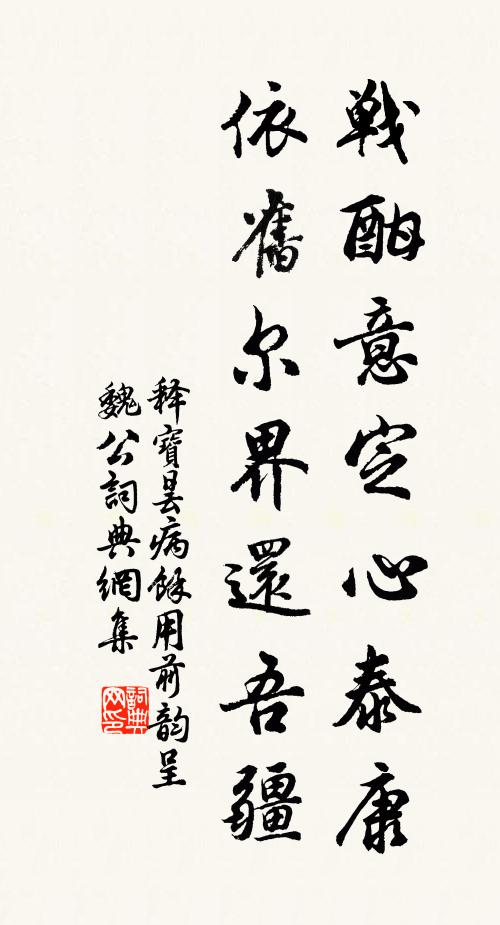 戦酣意定心泰康
依舊尔界還吾疆
释寶昙病餘用前韵呈
魏公詞典網集
詞典网印